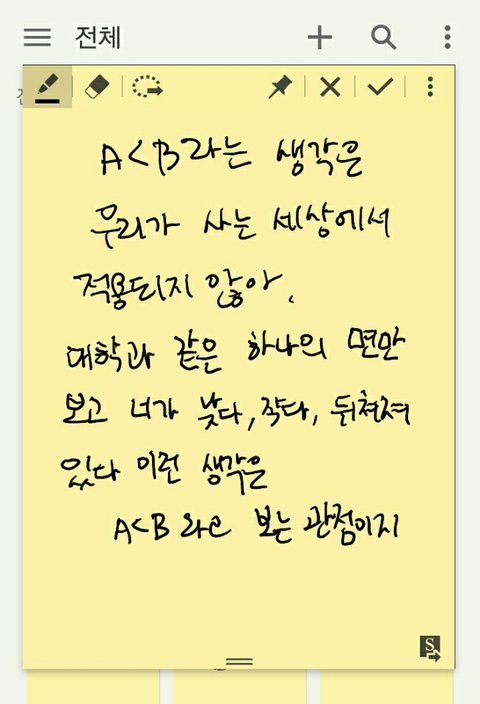 전체
A<B라는 생각은
우리가 사는 세상에서
적용되지 않아.
대학과 같은 하나의 면만
보고 너가 낮다, 작다, 뒤쳐져
있다 이런 생각은
A<B 라고 보는 관점이지
S